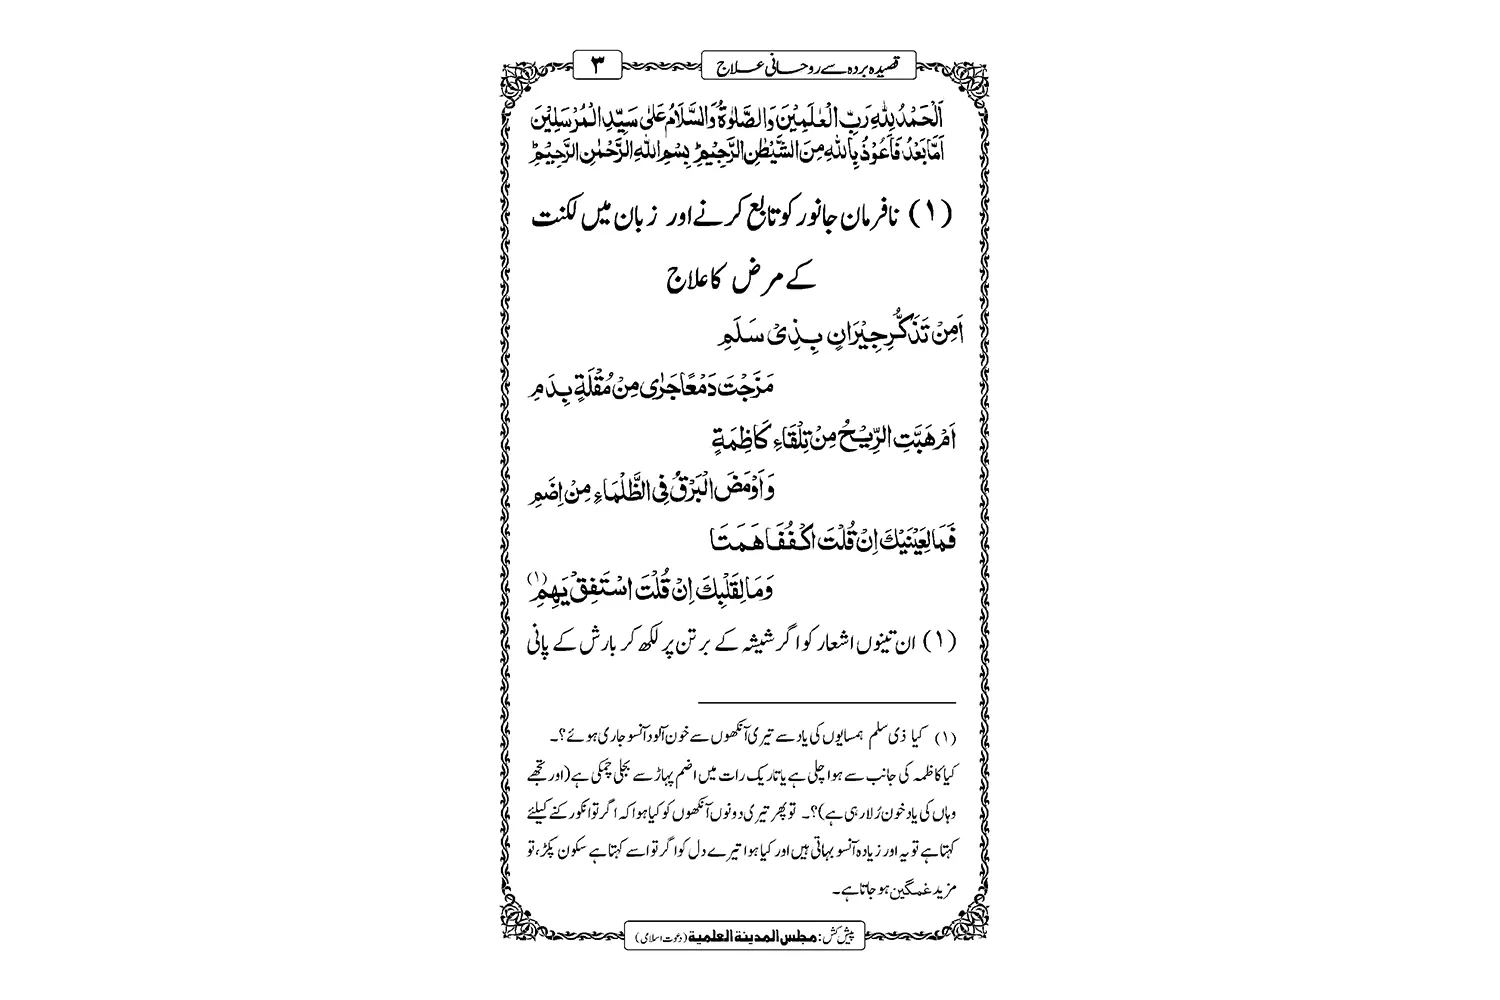 قصیدہ بردہ سے روحانی علاج
۳
اَلْحَمْدُ لِلّٰهِ رَبِّ الْعٰلَمِيْنَ وَالصَّلٰوةُ وَالسَّلَامُ عَلٰى سَيِّدِ الْمُرْسَلِيْنَ
اَمَّا بَعْدُ فَاَعُوْذُ بِاللّٰهِ مِنَ الشَّيْطٰنِ الرَّجِيْمِ ؕ بِسْمِ اللّٰهِ الرَّحْمٰنِ الرَّحِيْمِ ؕ
(۱) نافرمان جانور کو تابع کرنے اور زبان میں لکنت
کے مرض کا علاج
اَمِنْ تَذَكُّرِ جِيْرَانٍ بِذِىْ سَلَمِ
مَزَجْتَ دَمْعًا جَرٰى مِنْ مُقْلَةٍ بِدَمِ
اَمْ هَبَّتِ الرِّيْحُ مِنْ تِلْقَاءِ كَاظِمَةٍ
وَاَوْمَضَ الْبَرْقُ فِى الظَّلْمَاءِ مِنْ اِضَمِ
فَمَا لِعَيْنَيْكَ اِنْ قُلْتَ اكْفُفَا هَمَتَا
وَمَا لِقَلْبِكَ اِنْ قُلْتَ اسْتَفِقْ يَهِمِ (۱)
(۱) ان تینوں اشعار کو اگر شیشہ کے برتن پر لکھ کر بارش کے پانی
(۱) کیا ذی سلم ہمسایوں کی یاد سے تیری آنکھوں سے خون آلود آنسو جاری ہوئے؟۔
کیا کاظمہ کی جانب سے ہوا چلی ہے یا تاریک رات میں اضم پہاڑ سے بجلی چمکی ہے (اور تجھے
وہاں کی یاد خون رُلا رہی ہے)؟۔ تو پھر تیری دونوں آنکھوں کو کیا ہوا کہ اگر تو انکو رکنے کیلئے
کہتا ہے تو یہ اور زیادہ آنسو بہاتی ہیں اور کیا ہوا تیرے دل کو اگر تو اسے کہتا ہے سکون پکڑ، تو
مزید غمگین ہو جاتا ہے۔
پیش کش: مجلس المدینة العلمیة (دعوت اسلامی)